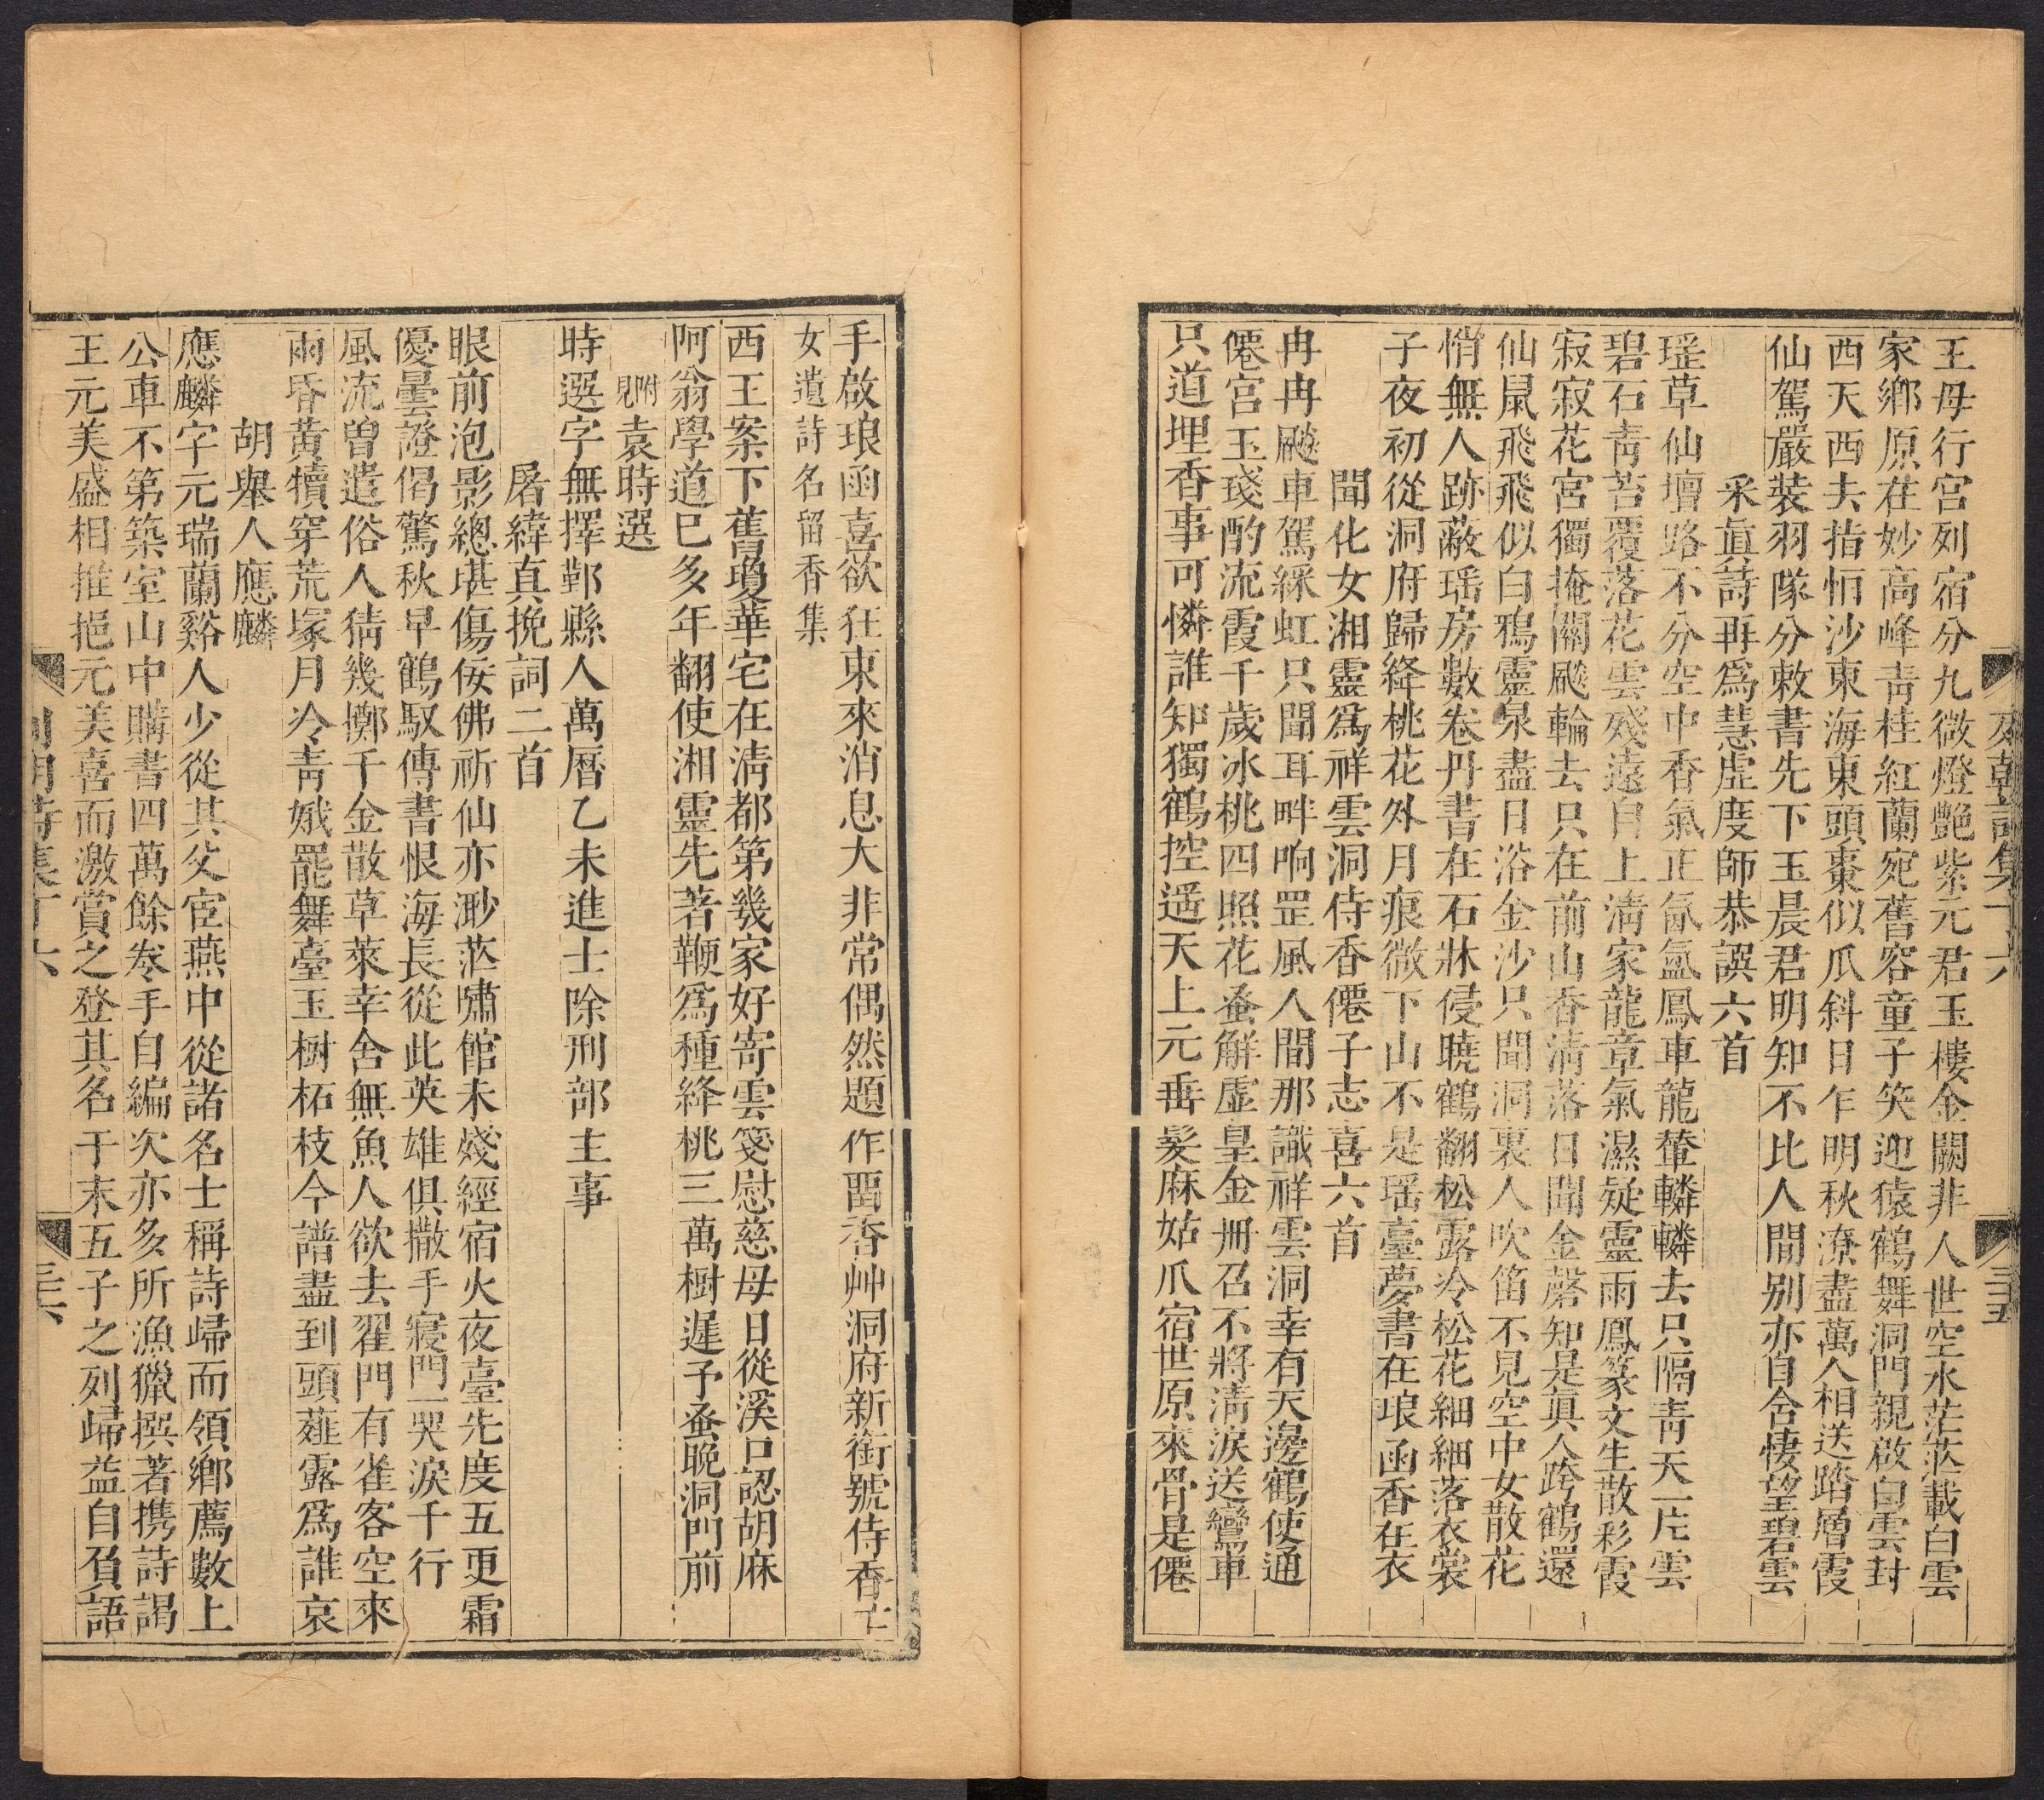 王母行宫列宿分九微燈艷紫元君玉樓金闕非人世空水茫茫載白雲
家鄉原在妙高峰靑桂紅蘭宛舊容童子笑迎猿鶴舞洞門親啟白雲封
西天西去指恒沙東海東頭棗似瓜斜日乍明秋潦盡萬人相送踏層霞
仙駕嚴裝羽隊分敕書先下玉晨君明知不比人間别亦自含悽望碧雲
采眞詩再爲慧虛度師恭譔六首
瑶草仙壇路不分空中香氣正氤氳鳳車龍輦轔轔去只隔靑天一片雲
碧石靑苔覆落花雲殘遠自上淸家龍章氣濕疑靈雨鳳篆文生散彩霞
寂寂花宮獨掩關飈輪去只在前山香淸落日聞金磬知是眞人跨鶴還
仙鼠飛飛似白鴉靈泉盡日浴金沙只聞洞裏人吹笛不見空中女散花
悄無人跡蔽瑶房數卷丹書在石牀侵曉鶴翻松露冷松花細細落衣裳
子夜初從洞府歸絳桃花外月痕微下山不是瑶臺夢書在琅函香在衣
聞化女湘靈爲祥雲洞侍香僊子志喜六首
冉冉飈車駕綵虹只聞耳畔响罡風人間那識祥雲洞幸有天邊鶴使通
僊宫玉琖酌流霞千歲冰桃四照花蚤解虛皇金冊召不將淸淚送鸞車
只道埋香事可憐誰知獨鶴控遥天上元垂髮麻姑爪宿世原來骨是僊
列朝詩集丁六
三五
手啟琅函喜欲狂東來消息大非常偶然題作畱香艸洞府新銜號侍香亡
女遺詩名留香集
西王案下舊瓊華宅在淸都第幾家好寄雲箋慰慈母日從溪口認胡麻
阿翁學道已多年翻使湘靈先著鞭爲種絳桃三萬樹遲予蚤晚洞門前
附見袁時選
時選字無擇鄞縣人萬曆乙未進士除刑部主事
屠緯真挽詞二首
眼前泡影總堪傷佞佛祈仙亦渺茫嘯館未殘經宿火夜臺先度五更霜
優曇證偈驚秋早鶴馭傳書恨海長從此英雄俱撒手寢門一哭淚千行
風流曽遣俗人猜幾擲千金散草萊幸舍無魚人欲去翟門有雀客空來
雨昏黃犢穿荒塚月冷靑娥罷舞臺玉樹柘枝今譜盡到頭薤露爲誰哀
胡舉人應麟
應麟字元瑞蘭谿人少從其父宦燕中從諸名士稱詩歸而領鄉薦數上
公車不第築室山中購書四萬餘卷手自編次亦多所漁獵撰著携詩謁
王元美盛相推挹元美喜而激賞之登其名于末五子之列歸益自負語
列朝詩集丁六
三六